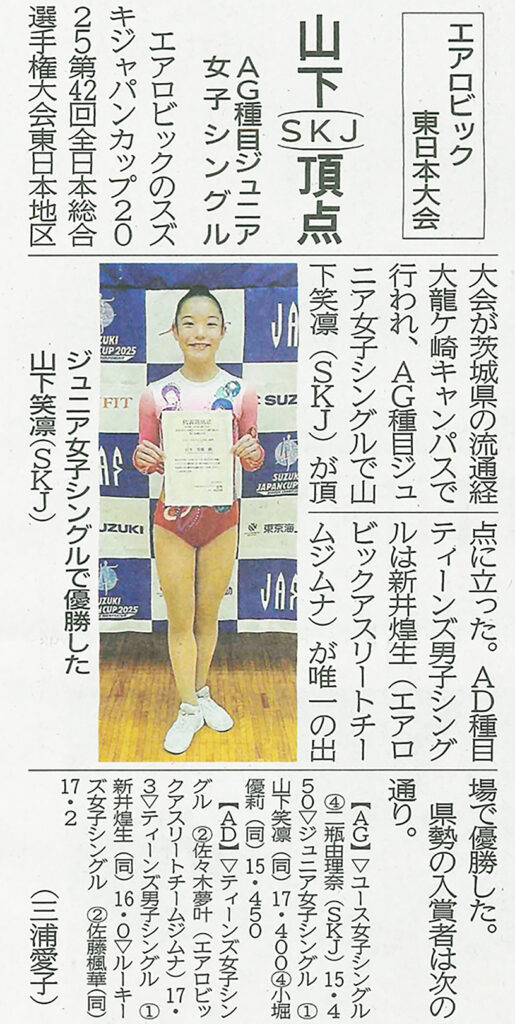 エアロビック
東日本大会
山下(SKJ)頂点
AG種目ジュニア
女子シングル
エアロビックのスズ
キジャパンカップ20
25第42回全日本総合
選手権大会東日本地区
大会が茨城県の流通経
大龍ケ崎キャンパスで
行われ、AG種目ジュ
ニア女子シングルで山
下笑凛(SKJ)が頂
点に立った。AD種目
ティーンズ男子シング
ルは新井煌生(エアロ
ビックアスリートチー
ムジムナ)が唯一の出
場で優勝した。
県勢の入賞者は次の
通り。
【AG】▽ユース女子シングル
④二瓶由理奈(SKJ)15・4
50▽ジュニア女子シングル ①
山下笑凛(同)17・400④小堀
優莉(同)15・450
【AD】▽ティーンズ女子シン
グル ②佐々木夢叶(エアロビッ
クアスリートチームジムナ)17・
3▽ティーンズ男子シングル ①
新井煌生(同)16・0▽ルーキー
ズ女子シングル ②佐藤楓華(同)
17・2
(三浦愛子)
ジュニア女子シングルで優勝した
山下笑凛(SKJ)
UZUKI
CUP 2025
JA
FIT
SUZ
JAF
SUZUKI
JAPAN CUP 2025
UZUKI
東京海上
UZUKI
CUP 2025
JAF